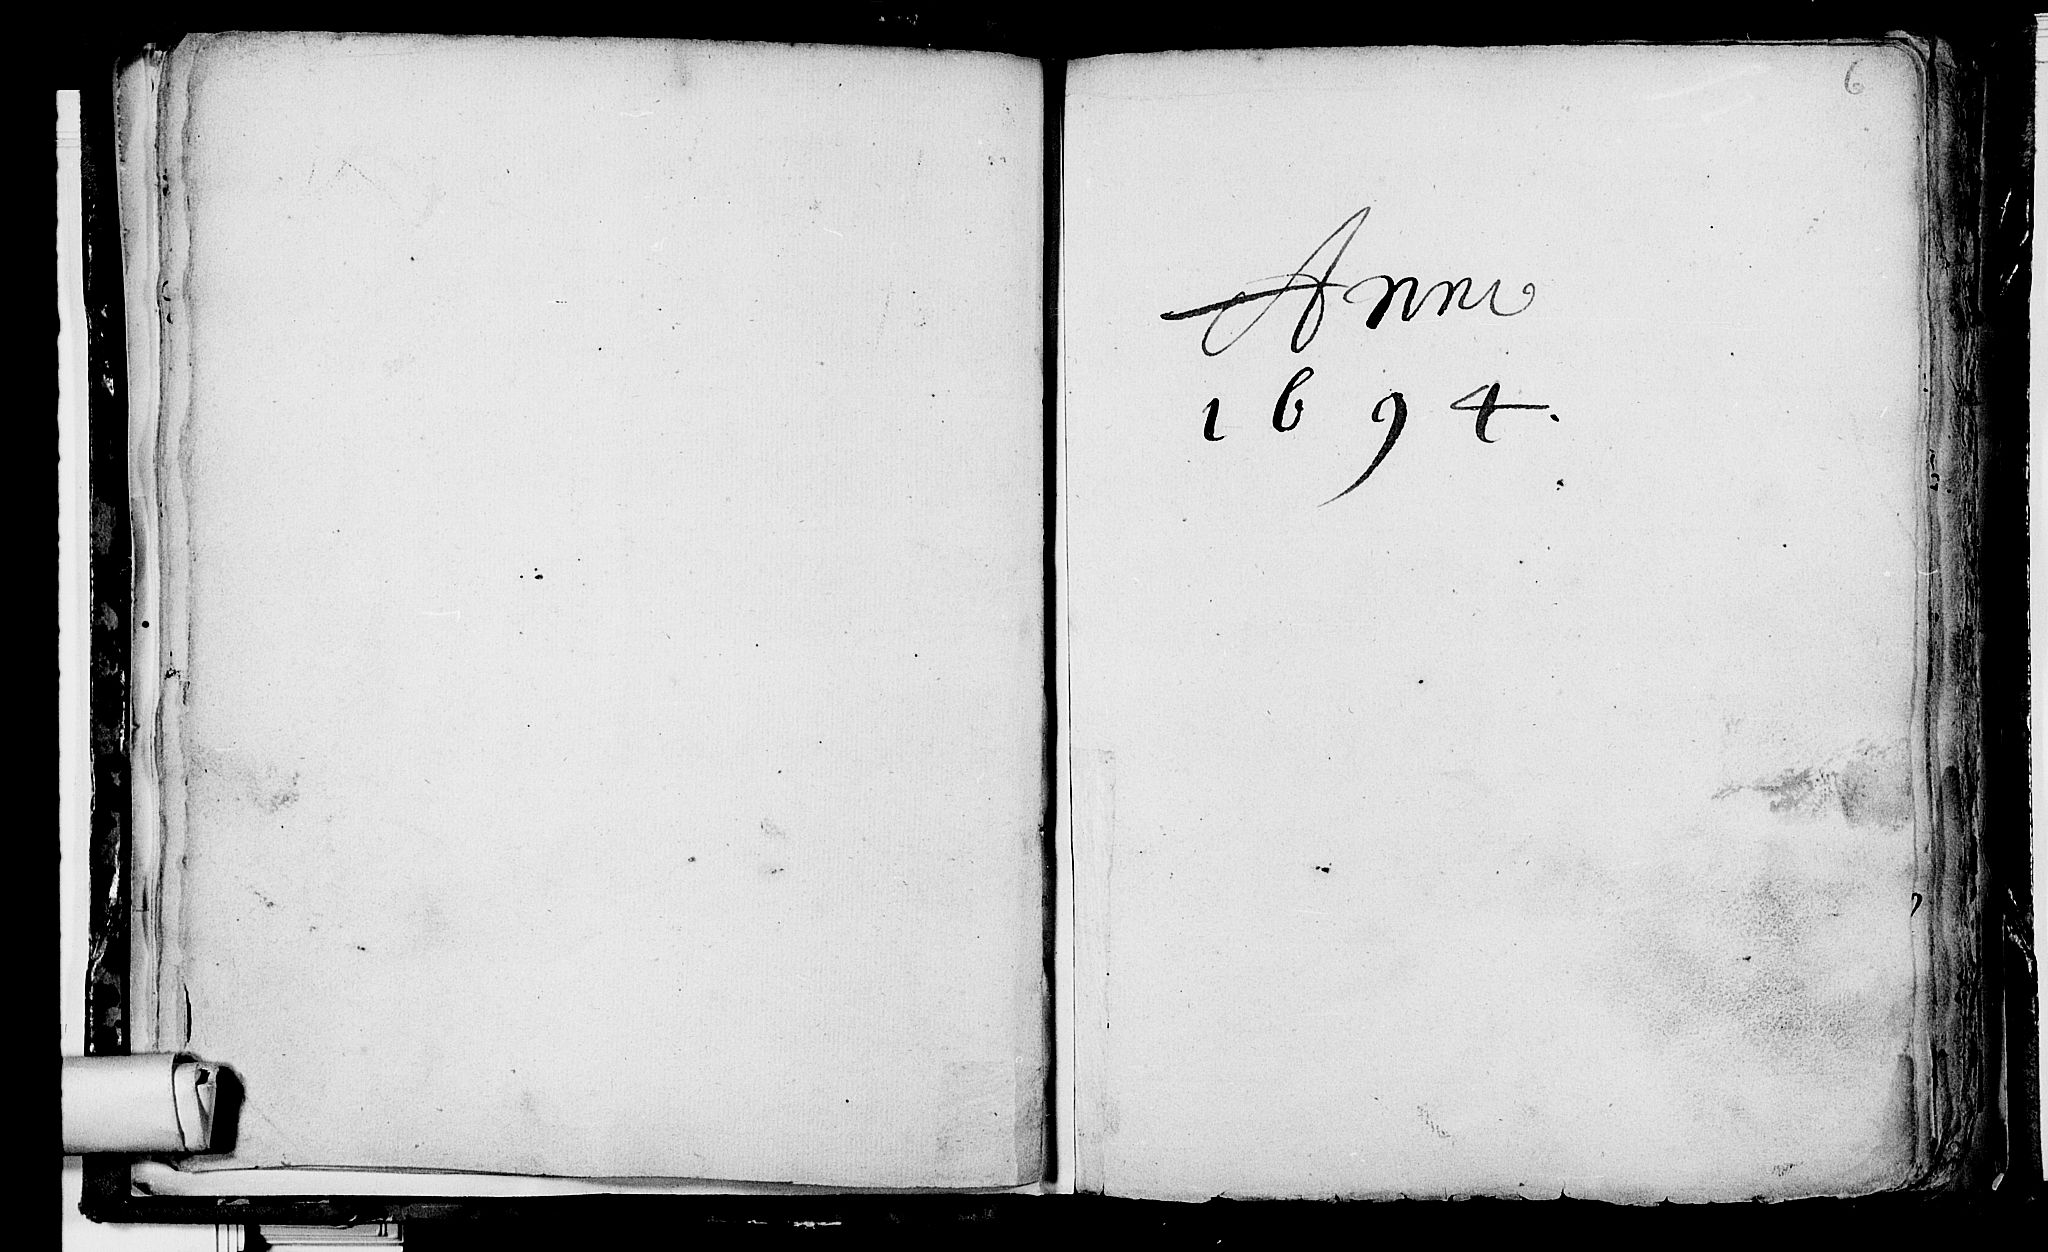 6
Anno
1694.